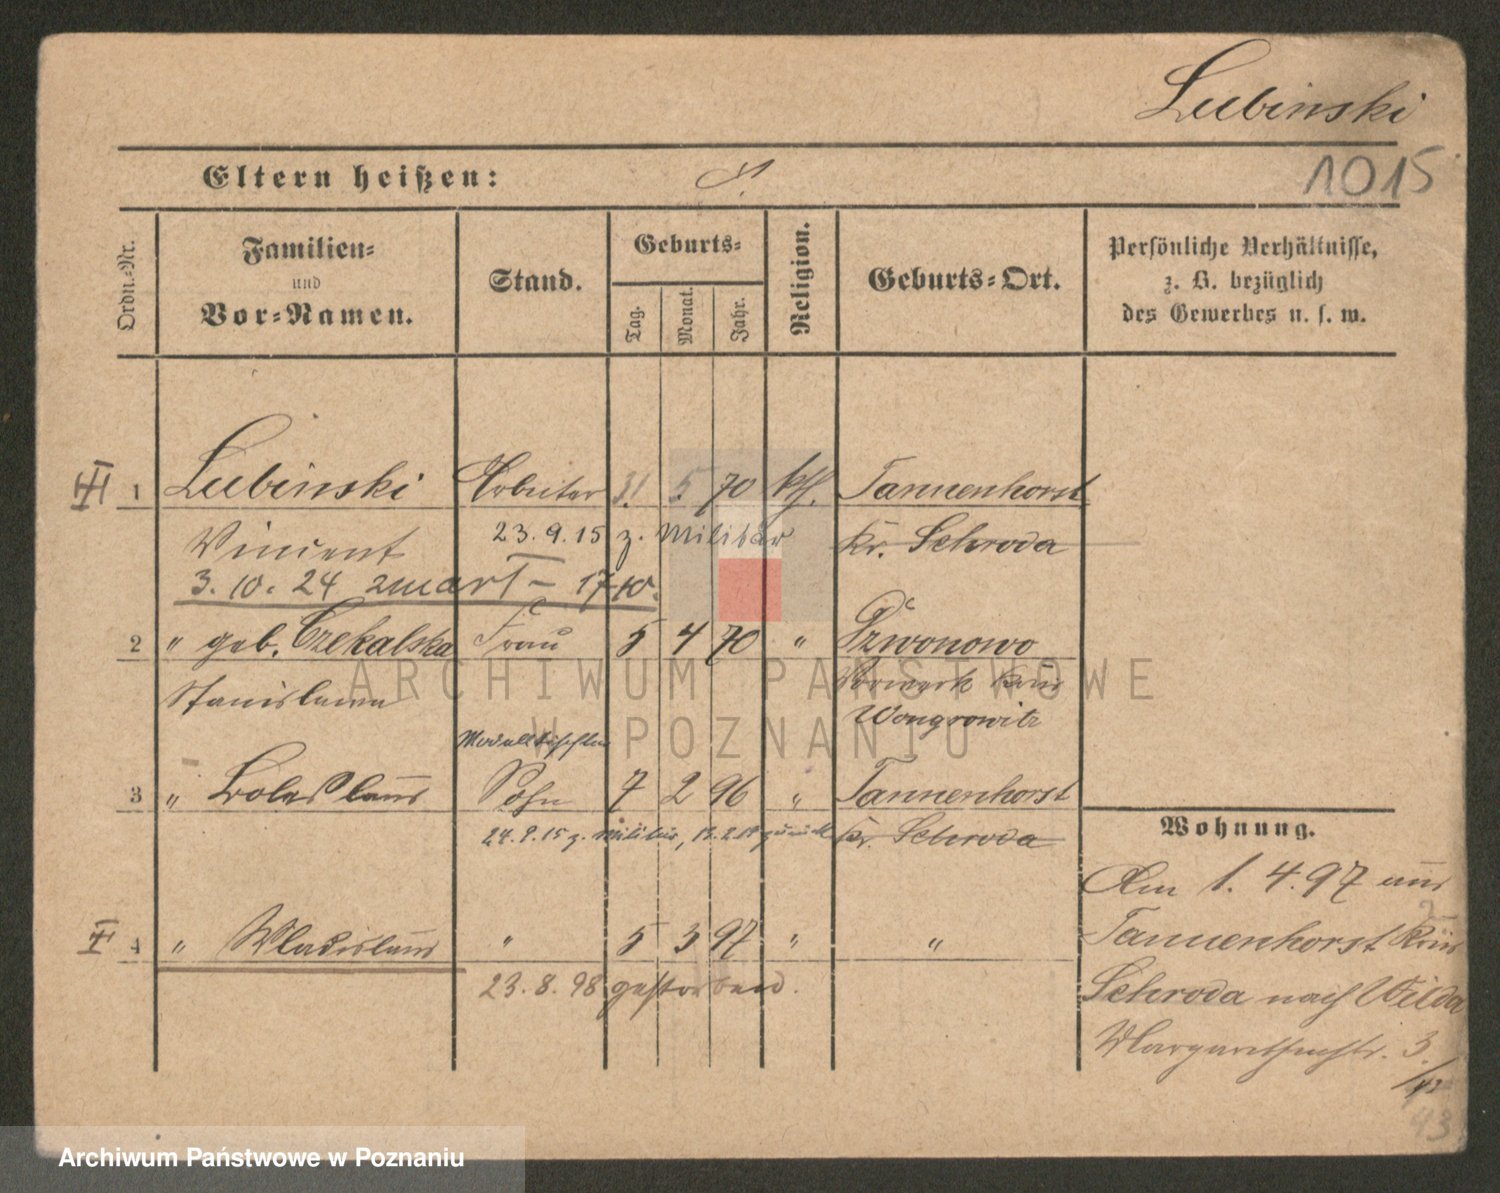 Lubinski
1015
Eltern heißen:
Ordn.-Nr.
Familien-
und
Vor-Namen.
Stand.
Geburts-
Tag.
Monat.
Jahr.
Religion.
Geburts-Ort.
Persönliche Verhältnisse,
z. B. bezüglich
des Gewerbes u. s. w.
1 Lubinski Arbeiter 31 5 70 kth. Tannenhorst
Vincent 23.9.15 z. Militär Kr. Schroda
3. 10. 24 zmarł
2 " geb. Czekalska Frau 5 4 70 " Dzwonowo
Stanislawa Vorwerk Kreis
Wongrowitz
3 " Boleslaus Sohn 7 2 96 " Tannenhorst
z. Militär, Kr. Schroda
4 " Wladislaus " 5 3 97 " "
23.8.98 gestorben.
Wohnung.
Am 1. 4. 97 aus
Tannenhorst Kreis
Schroda nach Wilda
Margarethenstr. 3
43
ARCHIWUM PAŃSTWOWE
W POZNANIU
Archiwum Państwowe w Poznaniu